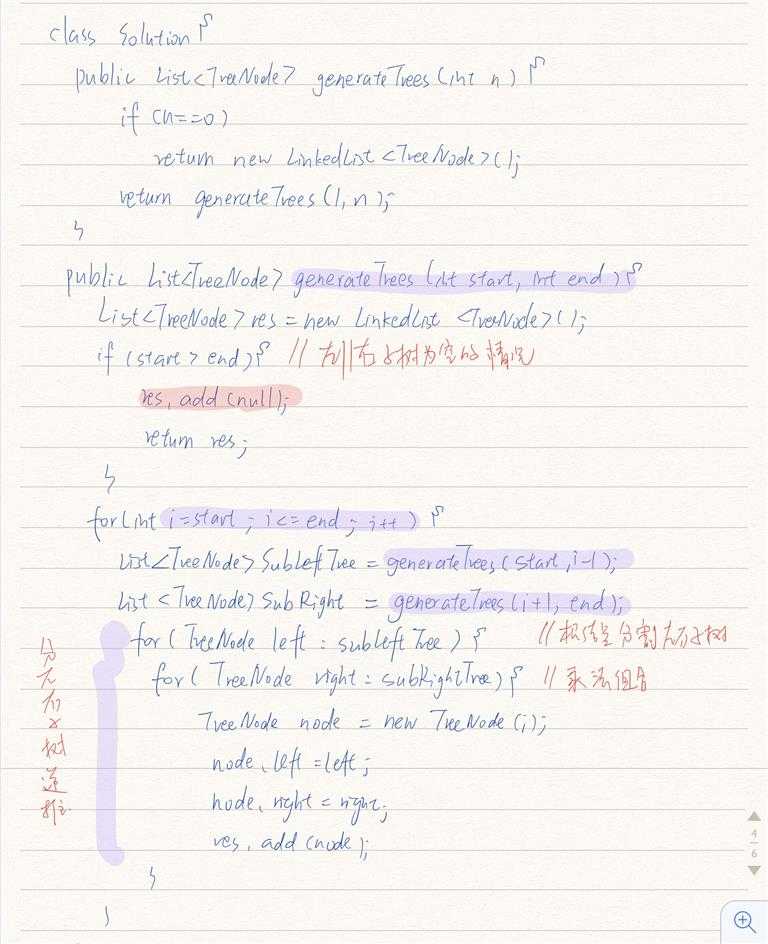 class Solution {
public List<TreeNode> generateTrees (int n) {
if (n==0)
return new LinkedList <TreeNode>();
return generateTrees (1, n);
}
public List<TreeNode> generateTrees (int start, int end) {
List<TreeNode> res = new LinkedList <TreeNode>();
if (start > end) { // 左||右子树为空的情况
res.add(null);
return res;
}
for(int i=start; i<=end; i++) {
List<TreeNode> SubLeftTree = generateTrees(start, i-1);
List <TreeNode> SubRight = generateTrees(i+1, end);
for (TreeNode left : subleftTree) { // 根结点分割左右子树
for (TreeNode right : subRightTree) { // 乘法组合
TreeNode node = new TreeNode (i);
node.left = left;
node.right = right;
res.add (node);
}
}
分左右子树递推
4
6